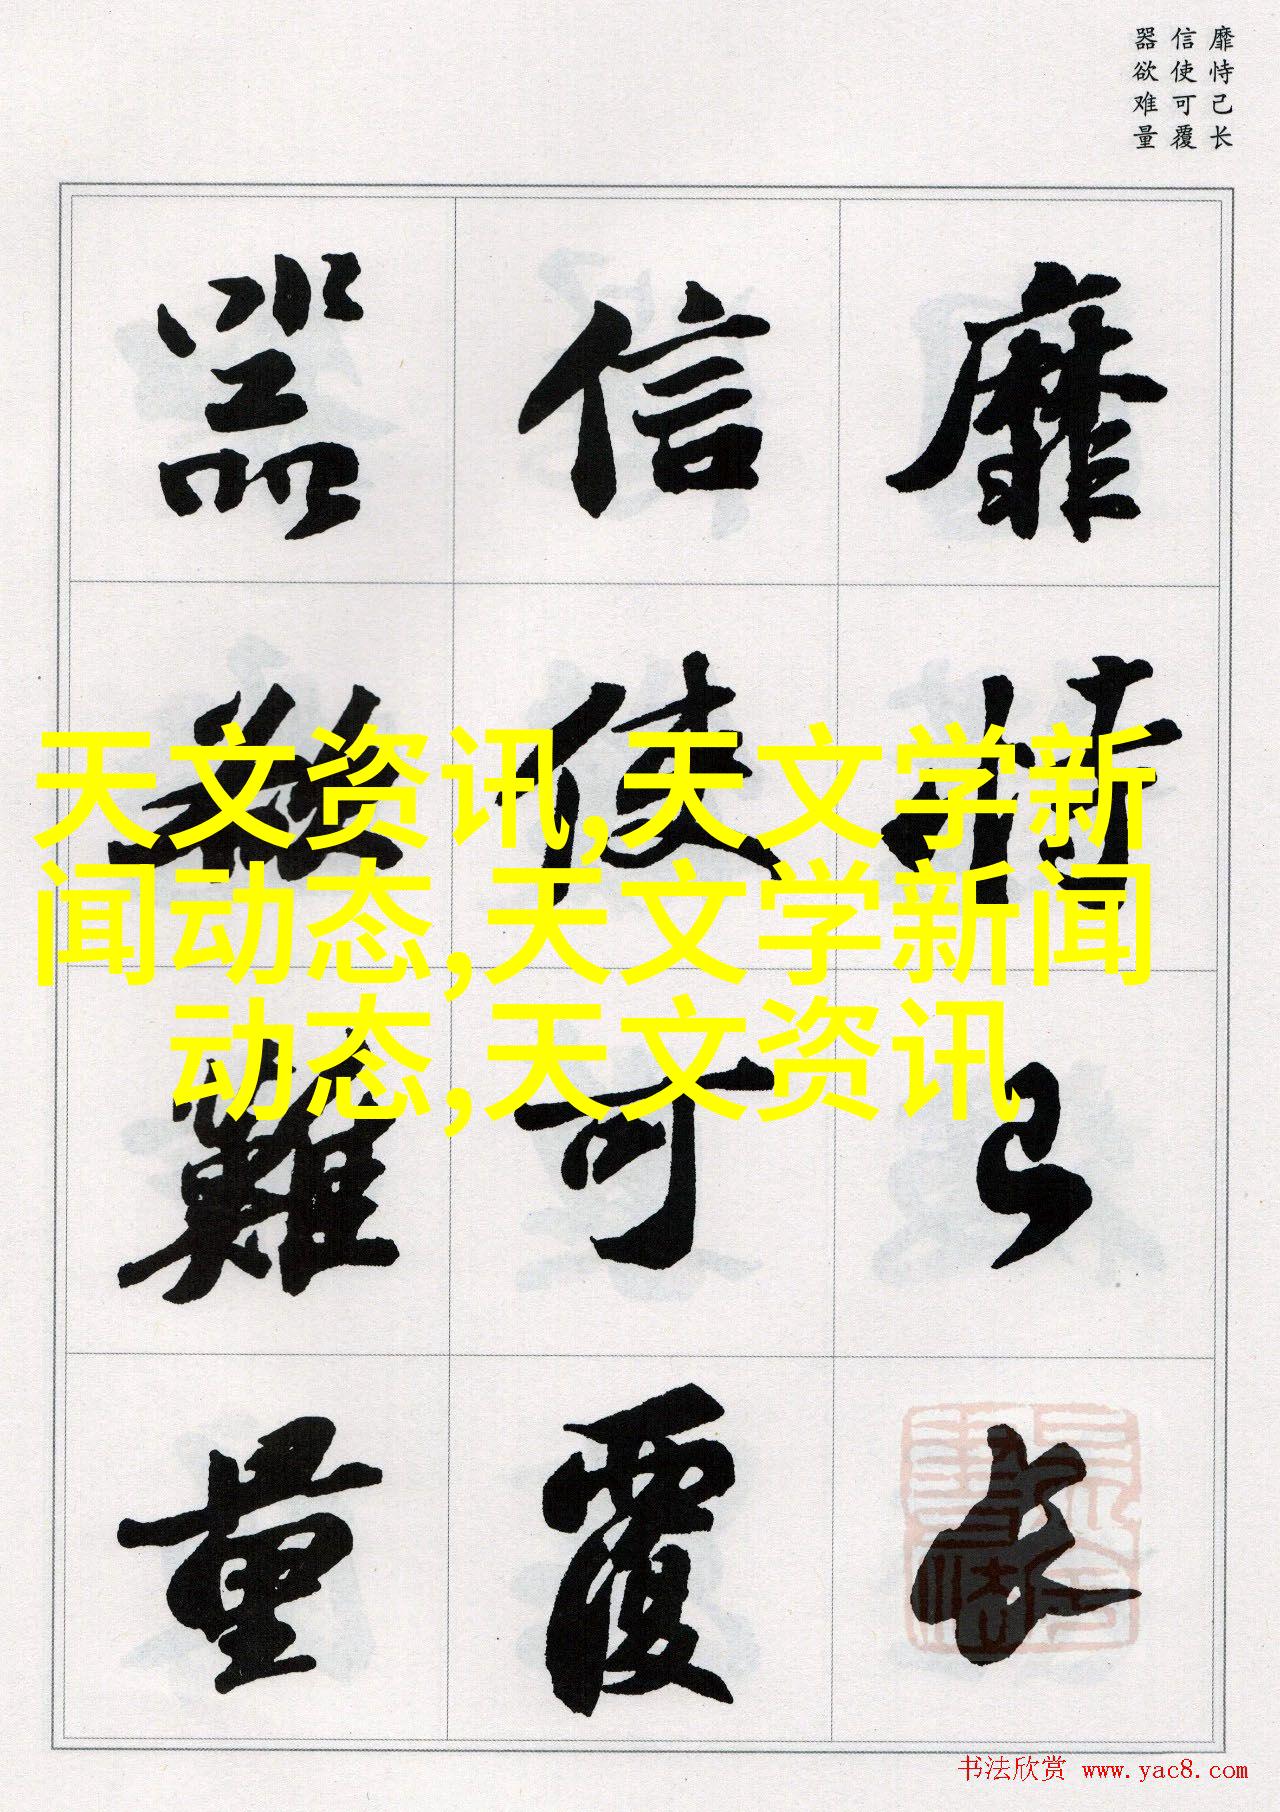 靡恃己长
信使可覆
器欲难量
靡恃己长
信使可覆
器欲難量
天文资讯,天文学新
闻动态,天文学新闻
动态,天文资讯
书法欣赏 www.yac8.com